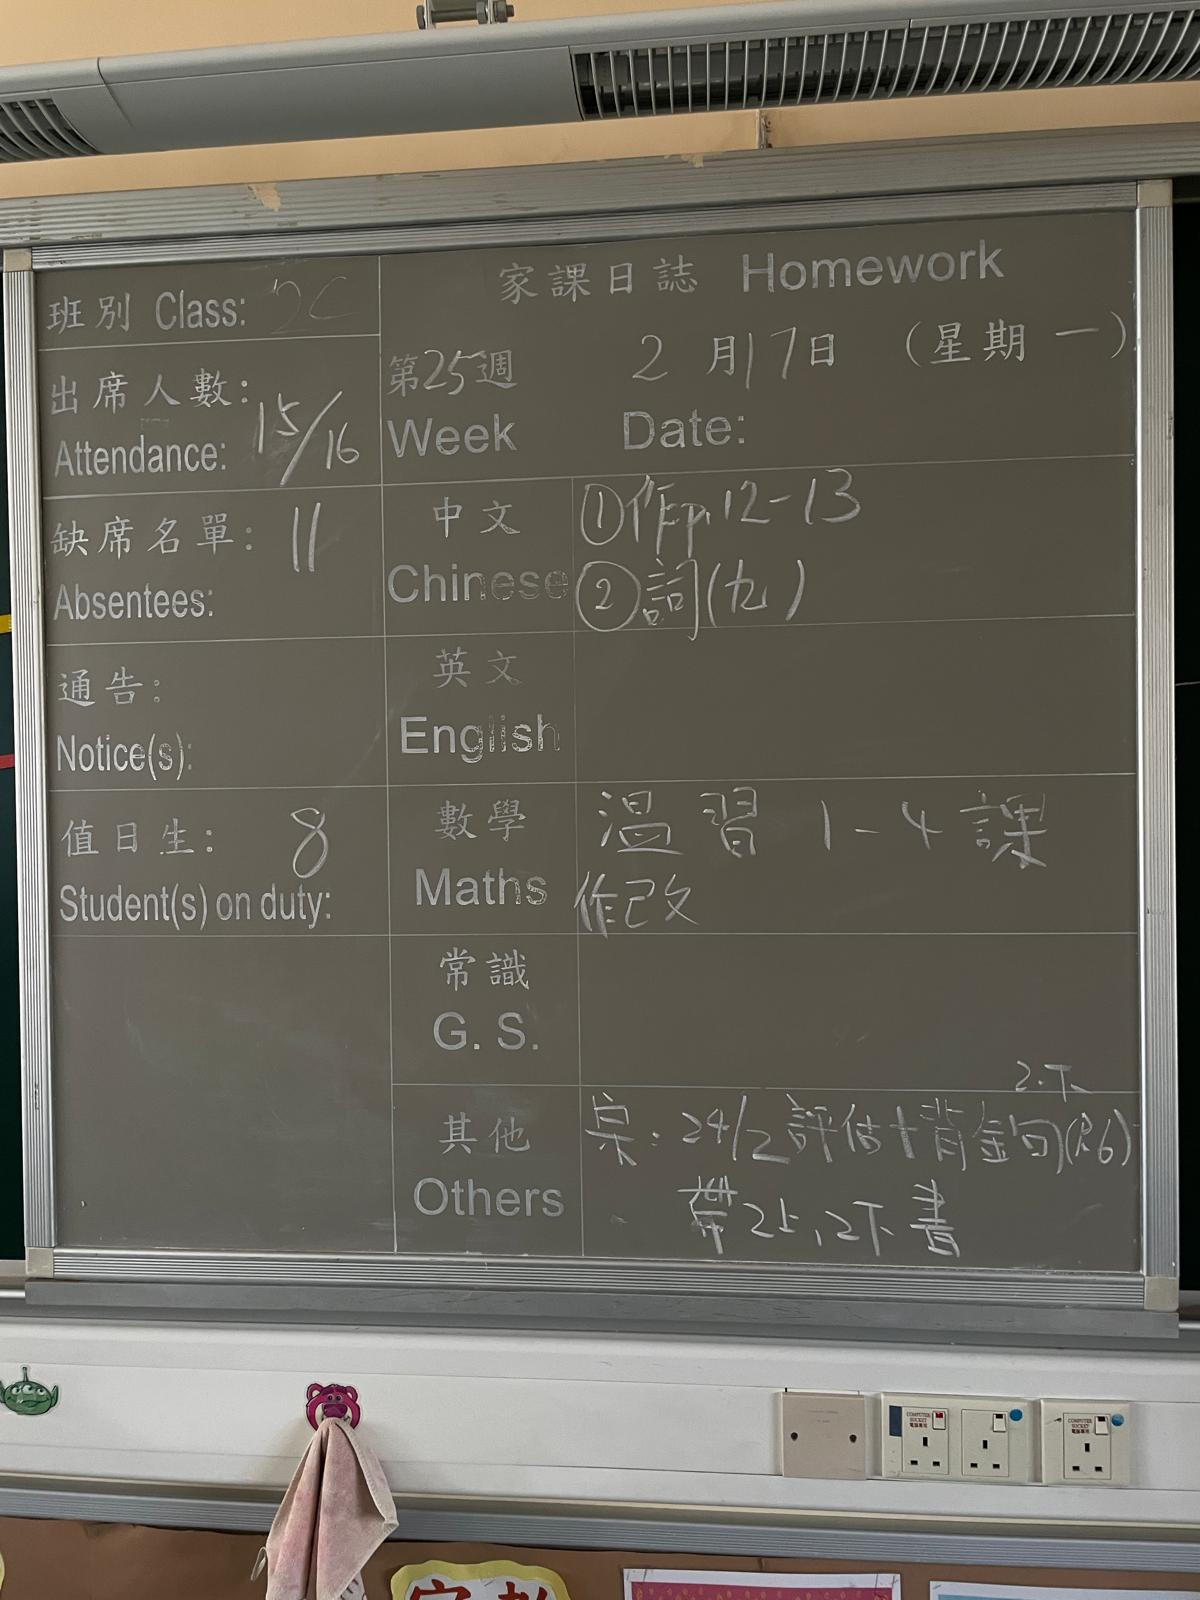 班別 Class: 2C
出席人數: 15/16
Attendance:
缺席名單: 11
Absentees:
通告:
Notice(s):
值日生: 8
Student(s) on duty:
家課日誌 Homework
第25週 2月17日 (星期一)
Week Date:
中文 ①作p.12-13
Chinese ②詞(九)
英文
English
數學 温習 1-4課
Maths 作己改
常識
G. S.
2.下
其他 宗: 24/2 評估+背金句(P.6)
Others 帶2上,2下書
COMPUTER SOCKET
COMPUTER SOCKET